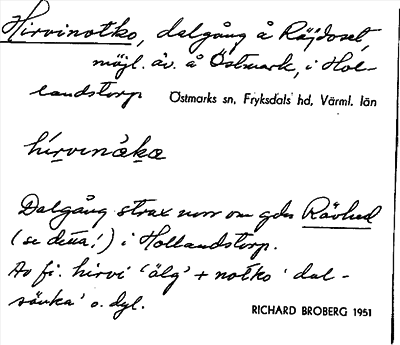 Hirvinotko, dalgång å Röjdoset,
möjl. äv. å Östmark, i Hol-
landstorp Östmarks sn, Fryksdals hd, Värml. län
hírvinɔ̀kɔ
Dalgång strax norr om gden Rävlud
(se detta!) i Hollandstorp.
Av fi. hirvi 'älg' + notko 'dal-
sänka' o. dyl.
RICHARD BROBERG 1951